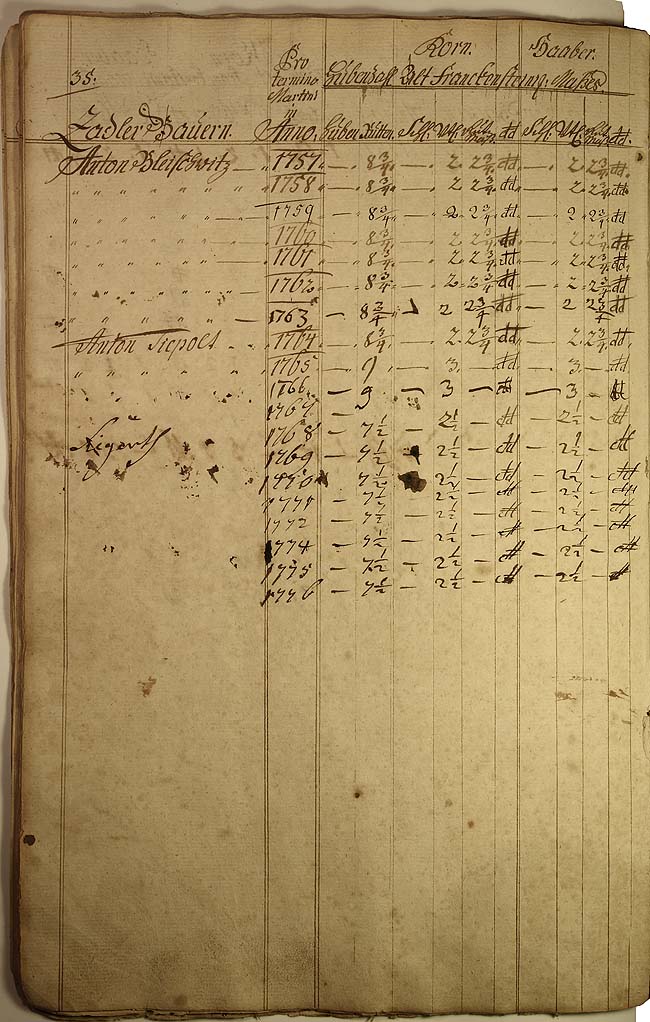 35.
Pro termino Martini in Anno.
Korn.
Haaber.
Hubenzahl. Alt Franckensteinig. Masses.
Zadler Bauern.
Huben Ruten.
Anton Bleischwitz — 1757 — 8¾ — 2 2¾ dd — 2 2¾ dd
" 1758 — 8¾ — 2 2¾ dd — 2 2¾ dd
" 1759 — 8¾ — 2 2¾ dd — 2 2¾ dd
" 1760 — 8¾ — 2 2¾ dd — 2 2¾ dd
" 1761 — 8¾ — 2 2¾ dd — 2 2¾ dd
" 1762 — 8¾ — 2 2¾ dd — 2 2¾ dd
" 1763 — 8¾ — 2 2¾ dd — 2 2¾ dd
Anton Siepolt 1764 — 8¾ — 2 2¾ dd — 2 2¾ dd
" 1765 — 9 — 3 — dd — 3 — dd
1766 — 9 — 3 — dd — 3 — dd
1767 — 2½ — dd 2½ — dd
1768 — 7½
1769 — 7½ — 2½ — dd — 2½ — dd
1770 — 7½ 2½ — dd — 2½ — dd
1771 — 7½ — 2½ — dd — 2½ — dd
1772 — 7½ — 2½ — dd — 2½ — dd
1774 — 7½ — 2½ — dd — 2½ — dd
1775 — 7½ — 2½ — dd — 2½ — dd
1776 — 7½ — 2½ — dd — 2½ — dd